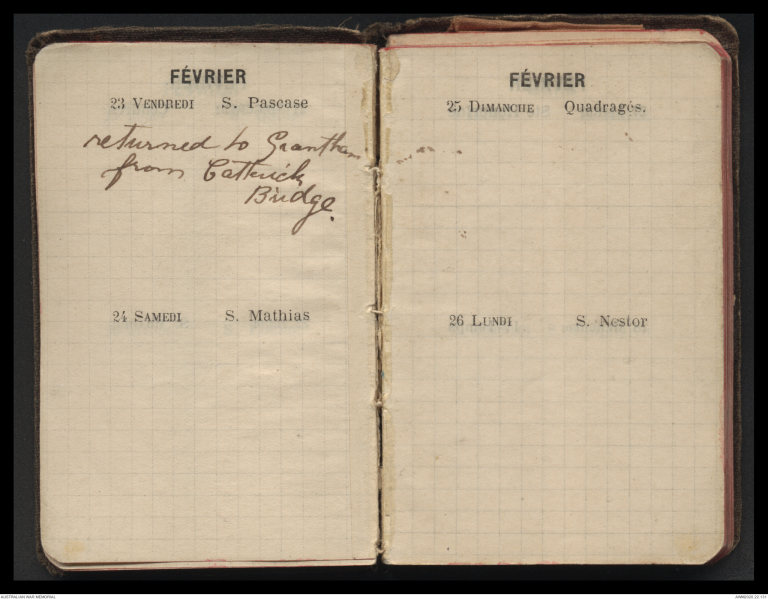 FÉVRIER
23 VENDREDI S. Pascase
returned to Grantham
from Catterick
Bridge.
24 SAMEDI S. Mathias
FÉVRIER
25 DIMANCHE Quadragés.
26 LUNDI S. Nestor
AUSTRALIAN WAR MEMORIAL